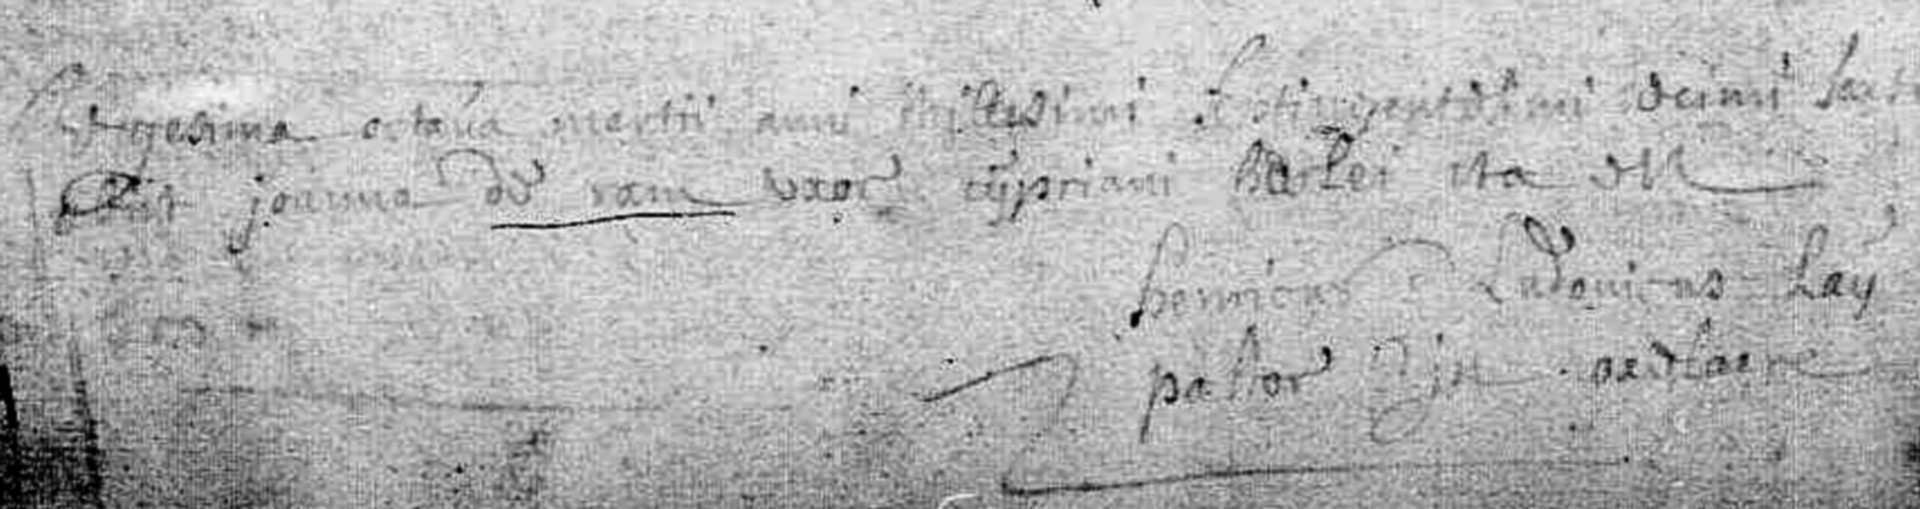 vigesima octava martii anni millesimi septingentesimi decimi sexti
obiit joanna de ram uxor cypriani ita est
henricus Ludovicus Lay
pastor in oedelaere